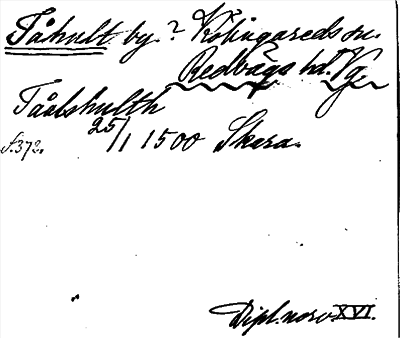 Tåhult by? Kölingareds sn.
Redvägs hd. Vg.
Tåålshulth
25/1 1500 Skara.
s. 372.
Dipl. norv. XVI.